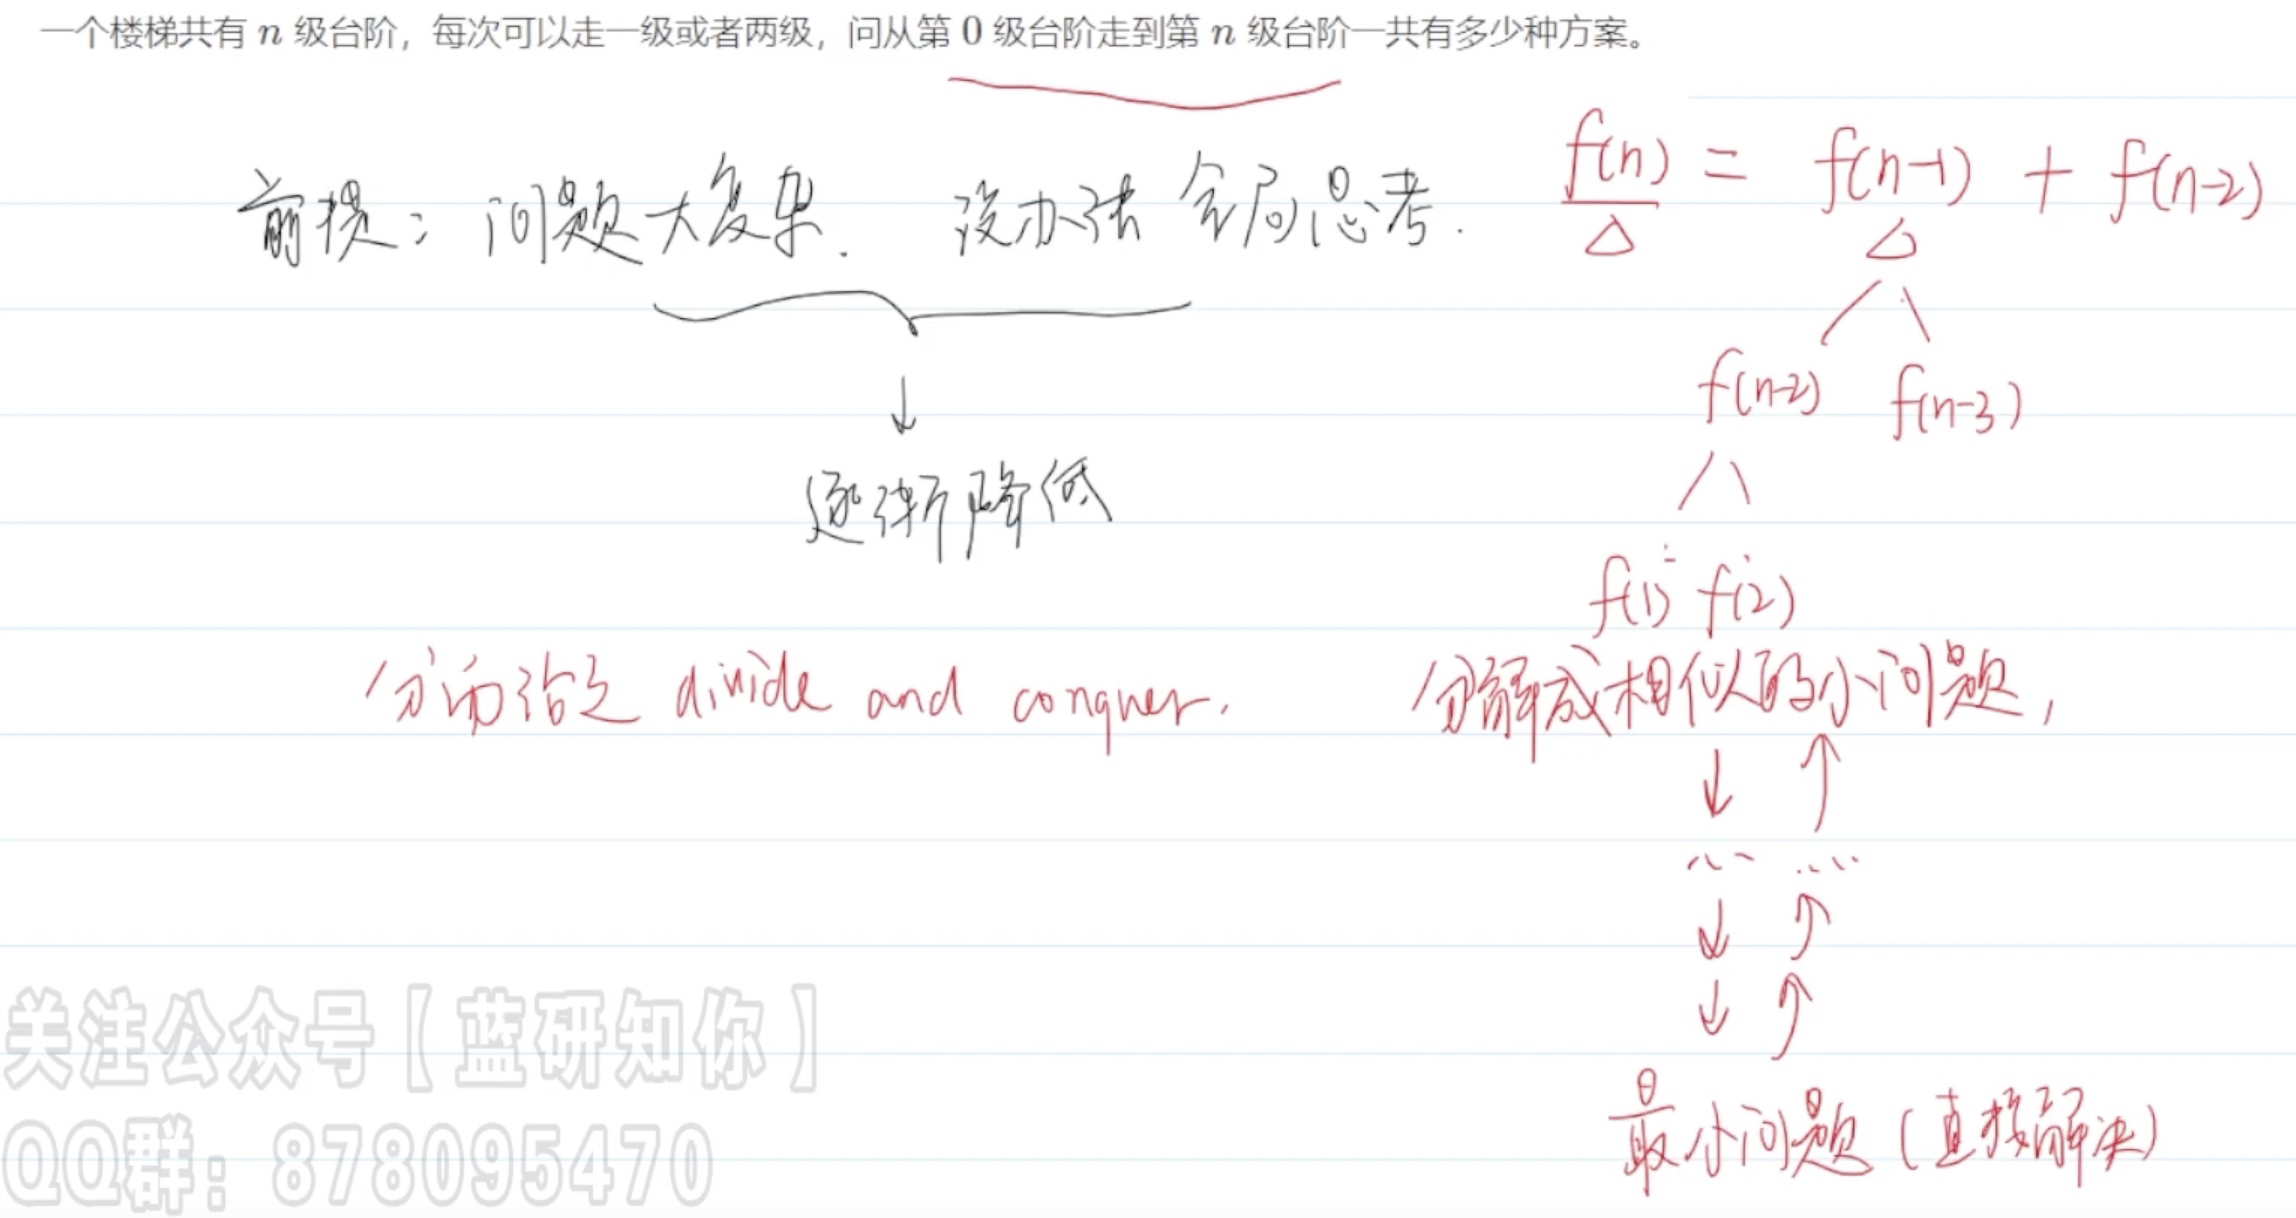 一个楼梯共有 n 级台阶，每次可以走一级或者两级，问从第 0 级台阶走到第 n 级台阶一共有多少种方案。
前提：问题太复杂. 没办法全局思考.
f(n) = f(n-1) + f(n-2)
f(n-2) f(n-3)
逐渐降低
f(1) f(2)
分而治之 divide and conquer.
分解成相似的小问题,
最小问题 (直接解决)
关注公众号【蓝研知你】
QQ群：878095470